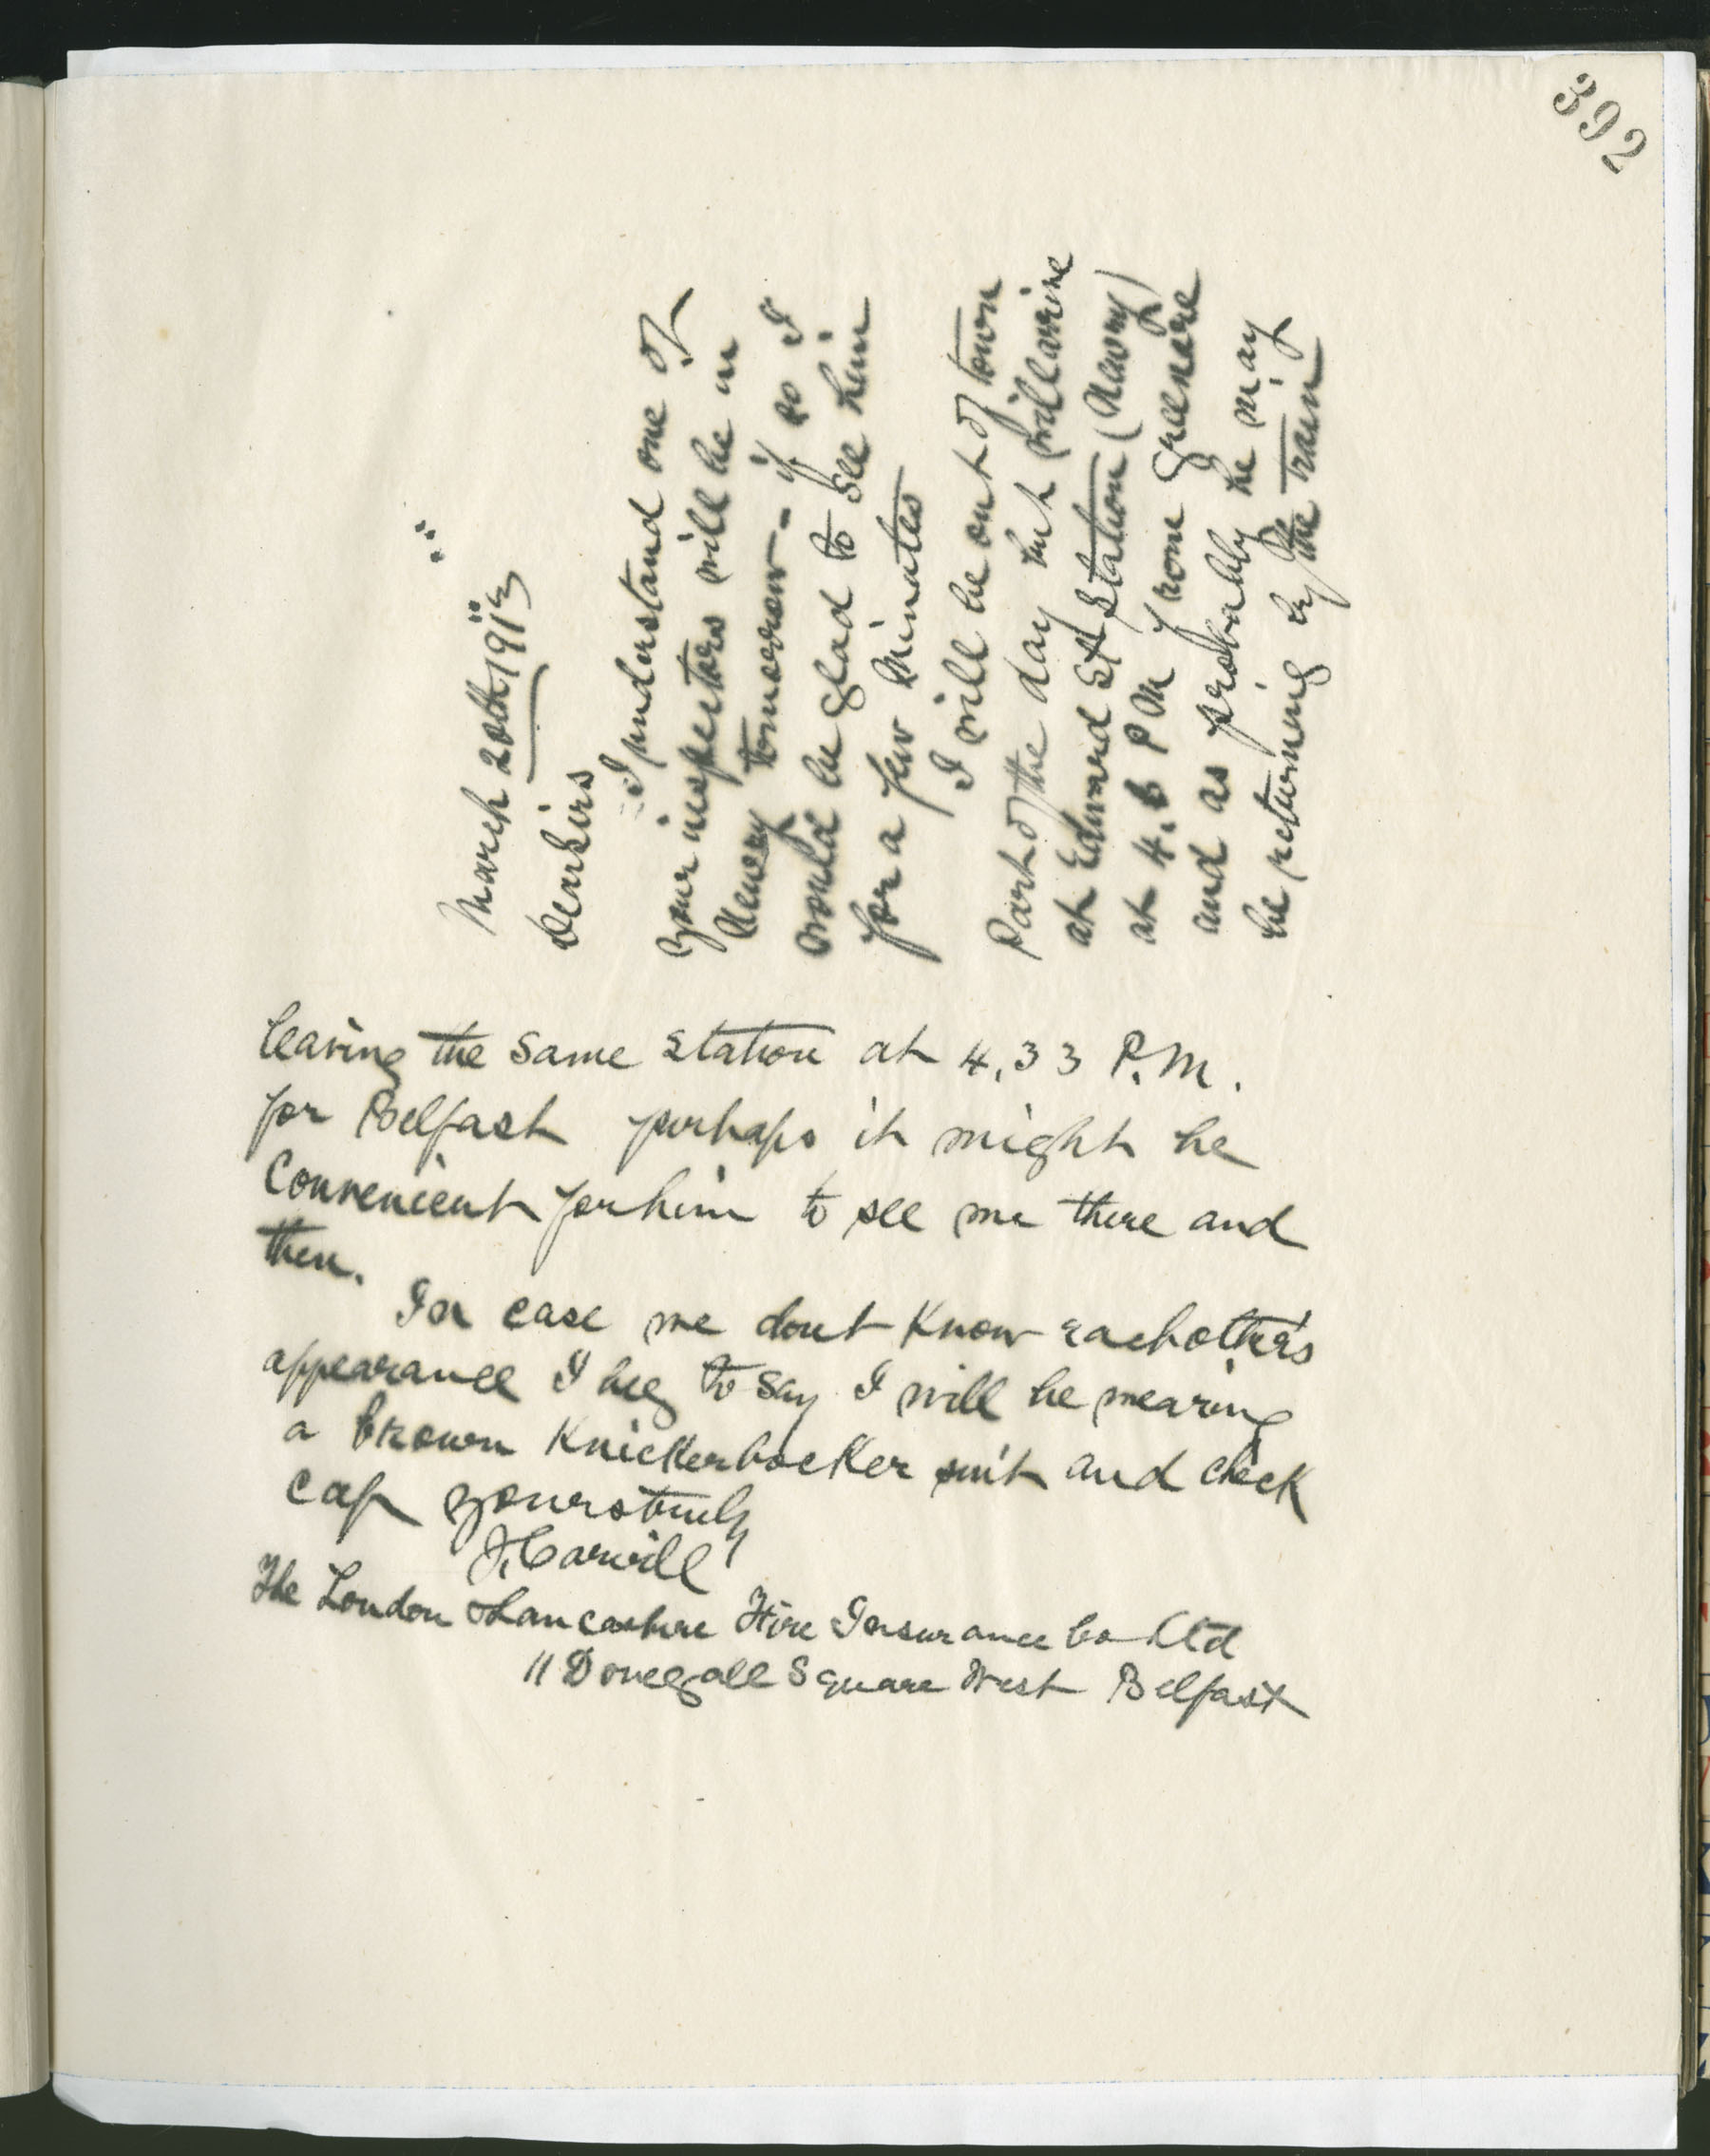 392
March 20th 1913
Dear Sirs
I understand one of
your inspectors will be in
Newry tomorrow - if so I
would be glad to see him
for a few minutes
I will be out of town
part of the day but will arrive
at Edward St Station (Newry)
at 4.6 PM from Greenore
and as probably he may
be returning by the train
leaving the same station at 4.33 P.M.
for Belfast perhaps it might be
Convenient for him to see me there and
then.
In case we dont know each other's
appearance I beg to say I will be wearing
a brown Knickerbocker suit and check
cap yours truly
J. Carvill
The London & Lancashire Fire Insurance Co Ltd
11 Donegall Square West Belfast